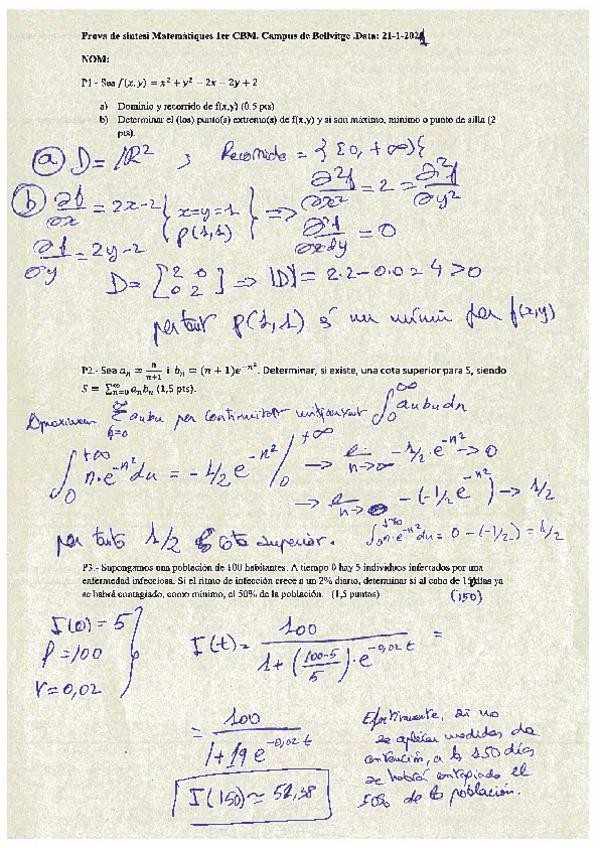 Prova de síntesi Matemàtiques 1er CBM. Campus de Bellvitge .Data: 21-1-2021
NOM:
P1.- Sea f(x, y) = x² + y² − 2x − 2y + 2
a) Dominio y recorrido de f(x,y) (0.5 pts)
b) Determinar el (los) punto(s) extremo(s) de f(x,y) y si son máximo, mínimo o punto de silla (2
pts).
a) D = ℝ² ; Recorrido = {[0, +∞){
b) ∂f/∂x = 2x-2 { x=y=1 } => ∂²f/∂x² = 2 = ∂²f/∂y²
∂f/∂y = 2y-2 { P(1,1) } ∂²f/∂x∂y = 0
D = [2 0 / 0 2] => |D| = 2·2-0·0 = 4 > 0
per tant P(1,1) és un mínim per f(x,y)
P2.- Sea aₙ = n/(n+1) i bₙ = (n + 1)e^(−n²). Determinar, si existe, una cota superior para S, siendo
S = ∑_(n=0)^∞ aₙbₙ (1,5 pts).
∑_(n=0)^∞ aₙbₙ per ∫₀^∞ aₙbₙdn
∫₀^(+∞) n·e^(-n²)dn = -1/2 e^(-n²) /₀^(+∞) → n→∞ -1/2·e^(-n²) → 0
→ n→0 -(-1/2 e^(-n²)) → 1/2
per tant 1/2 és cota superior. ∫₀^(+∞) n·e^(-n²)dn = 0-(-1/2) = 1/2
P3.- Supongamos una población de 100 habitantes. A tiempo 0 hay 5 individuos infectados por una
enfermedad infecciosa. Si el ritmo de infección crece a un 2% diario, determinar si al cabo de días ya
se habrá contagiado, como mínimo, el 50% de la población. (1,5 puntos) (150)
I(0) = 5
P = 100
r = 0,02
I(t) = 100 / (1 + ((100-5)/5)·e^(-0,02 t)) =
= 100 / (1+19 e^(-0,02 t))
I(150) ≈ 51,38
Efectivamente, si no
se aplican medidas de
contención, a los 150 días
se habrá contagiado el
50% de la población.